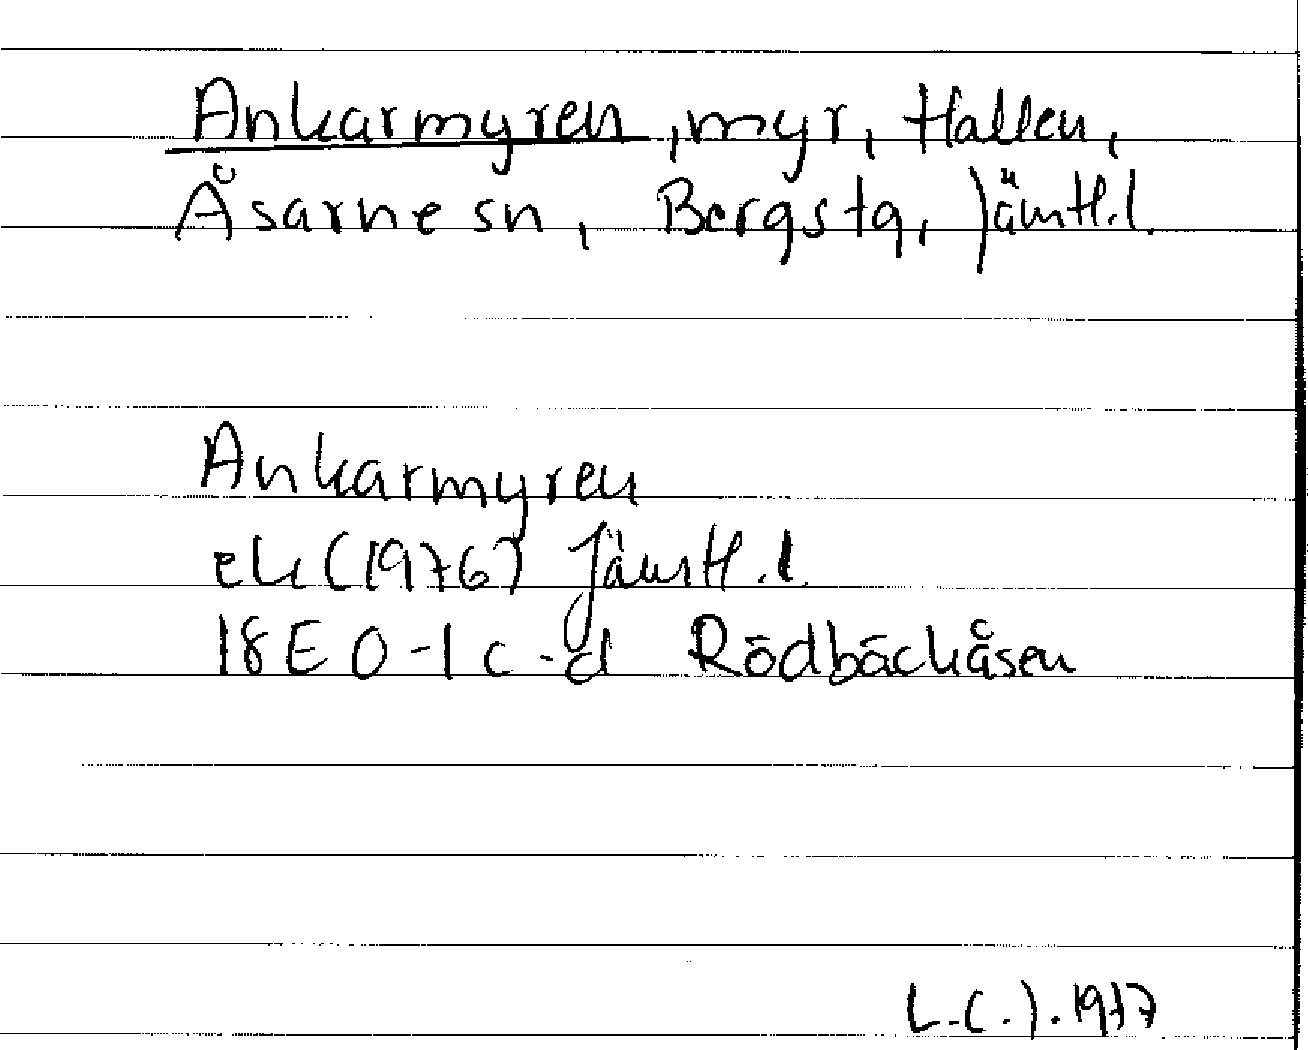 Ankarmyren, myr, Hallen,
Åsarne sn, Bergs tg, Jämtl.l.
Ankarmyren
ek (1976) Jämtl.l.
18E 0-1 c-d Rödbäckåsen
L.C.J. 1977